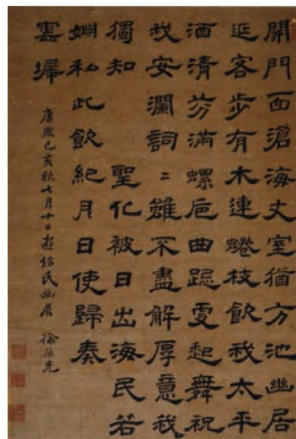 開門面滄海丈室猶方池幽居
延客步有木連蜷枝飲我太平
酒清芬滿螺卮曲跽更起舞祝
我安瀾詞〻雖不盡解厚意我
獨知 聖化被日出海民若
私此飲紀月日使歸奏
雲墀
康熙己亥秋七月十日民幽居 徐葆光